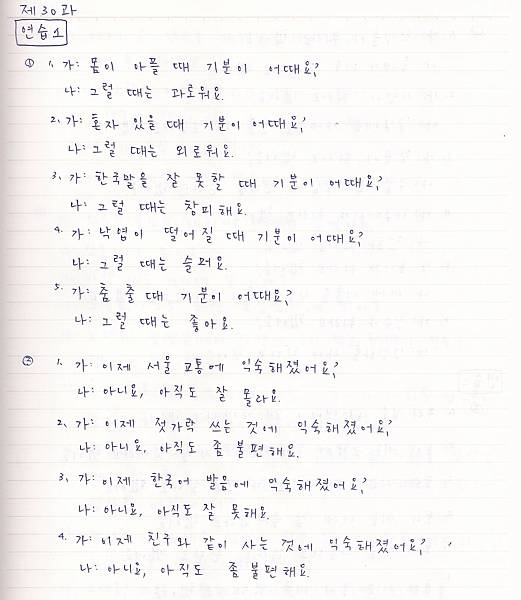 제30과
연습1
① 1. 가: 몸이 아플 때 기분이 어때요?
나: 그럴 때는 과로워요.
2. 가: 혼자 있을 때 기분이 어때요?
나: 그럴 때는 외로워요.
3. 가: 한국말을 잘 못할 때 기분이 어때요?
나: 그럴 때는 창피해요.
4. 가: 낙엽이 떨어질 때 기분이 어때요?
나: 그럴 때는 슬퍼요.
5. 가: 춤 출 때 기분이 어때요?
나: 그럴 때는 좋아요.
② 1. 가: 이제 서울 교통에 익숙해졌어요?
나: 아니요, 아직도 잘 몰라요.
2. 가: 이제 젓가락 쓰는 것에 익숙해졌어요?
나: 아니요, 아직도 좀 불편해요.
3. 가: 이제 한국어 발음에 익숙해졌어요?
나: 아니요, 아직도 잘 못해요.
4. 가: 이제 친구와 같이 사는 것에 익숙해졌어요?
나: 아니요, 아직도 좀 불편해요.